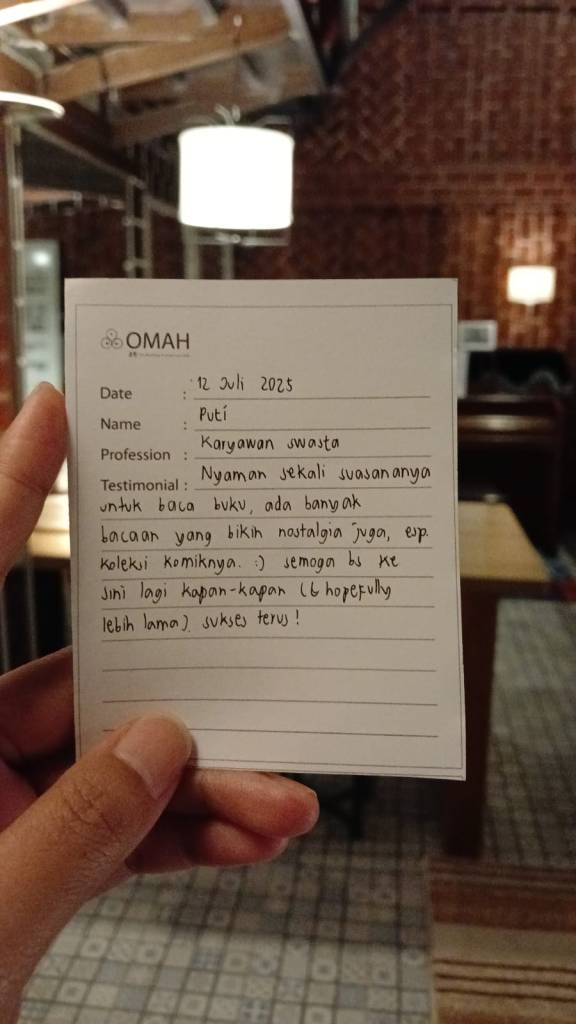 OMAH
Date : 12 Juli 2025
Name : Puti
Profession : Karyawan swasta
Testimonial : Nyaman sekali suasananya
untuk baca buku, ada banyak
bacaan yang bikin nostalgia juga, esp.
koleksi komiknya. :) semoga bs ke
sini lagi kapan-kapan (& hopefully
lebih lama). sukses terus!